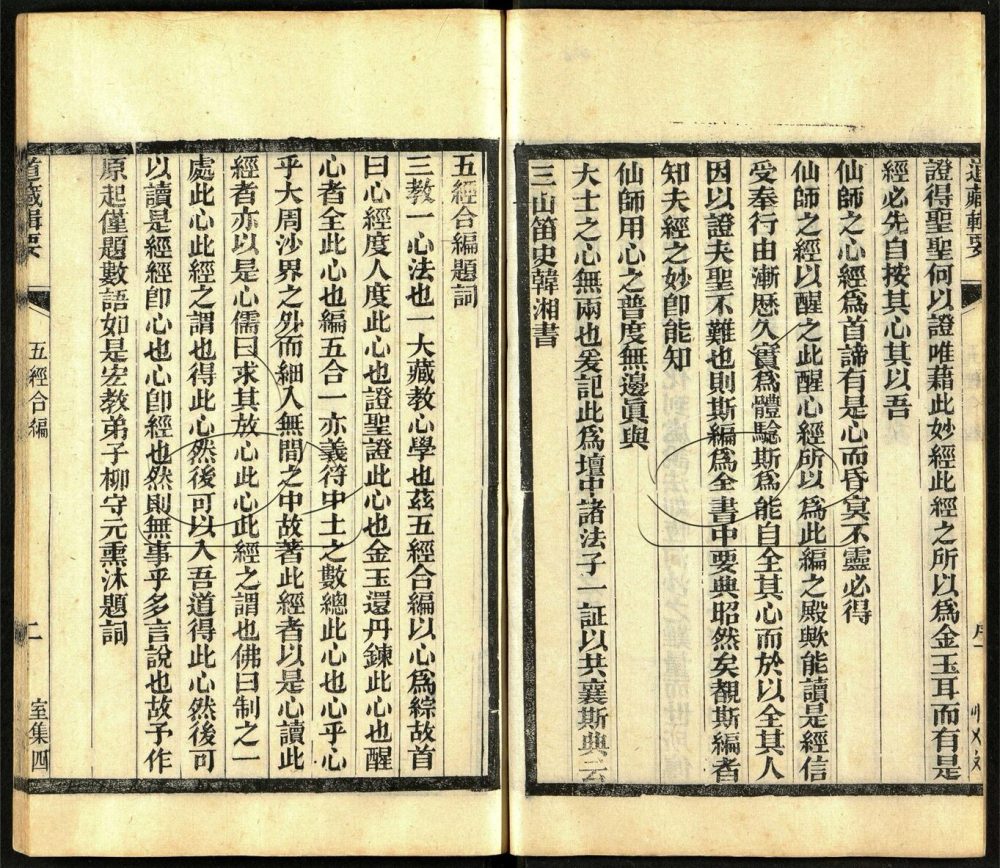 道藏輯要
證得聖聖何以證唯藉此妙經此經之所以爲金玉耳而有是
經必先自按其心其以吾
仙師之心經爲首諦有是心而昏冥不靈必得
仙師之經以醒之此醒心經所以爲此編之殿歟能讀是經信
受奉行由漸歷久實爲體驗斯爲能自全其心而於以全其人
因以證夫聖不難也則斯編爲全書中要典昭然矣覩斯編者
知夫經之妙卽能知
仙師用心之普度無邊眞與
大士之心無兩也爰記此爲壇中諸法子一証以共襄斯典云
三山笛史韓湘書
五經合編題詞
三教一心法也一大藏教心學也茲五經合編以心爲綜故首
曰心經度人度此心也證聖證此心也金玉還丹鍊此心也醒
心者全此心也編五合一亦義符中土之數總此心也心乎心
乎大周沙界之外而細入無間之中故著此經者以是心讀此
經者亦以是心儒曰求其放心此心此經之謂也佛曰制之一
處此心此經之謂也得此心然後可以入吾道得此心然後可
以讀是經經卽心也心卽經也然則無事乎多言說也故予作
原起僅題數語如是宏教弟子柳守元熏沐題詞
道藏輯要
五經合編
二
室集四